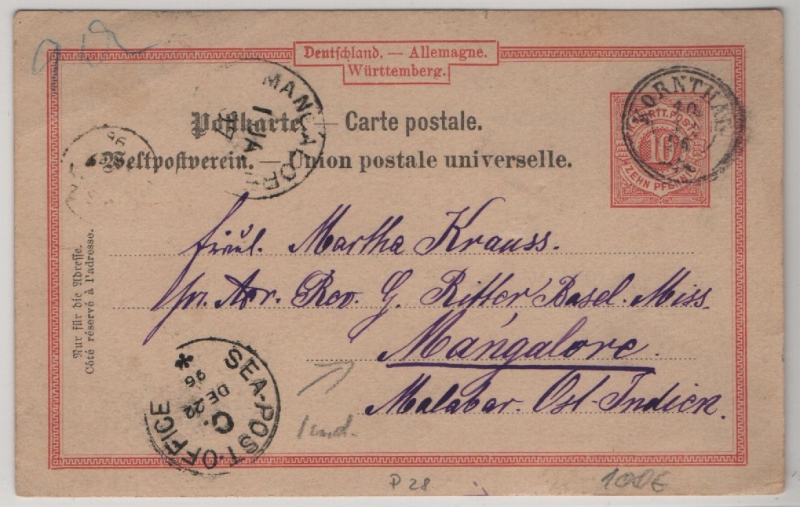 Deutschland. — Allemagne.
Württemberg.
MANGALORE
Postkarte. — Carte postale.
Weltpostverein. — Union postale universelle.
KORNTHAL
WÜRTT. POST
10
ZEHN PFENNIG
Fräul. Martha Krauss.
pr. Adr. Rev. G. Ritter Basel. Miss.
Mangalore.
Malabar. Ost-Indien.
Nur für die Adresse.
Côté réservé à l'adresse.
SEA-POST-OFFICE
C.
DE 22
96
P 28
100€